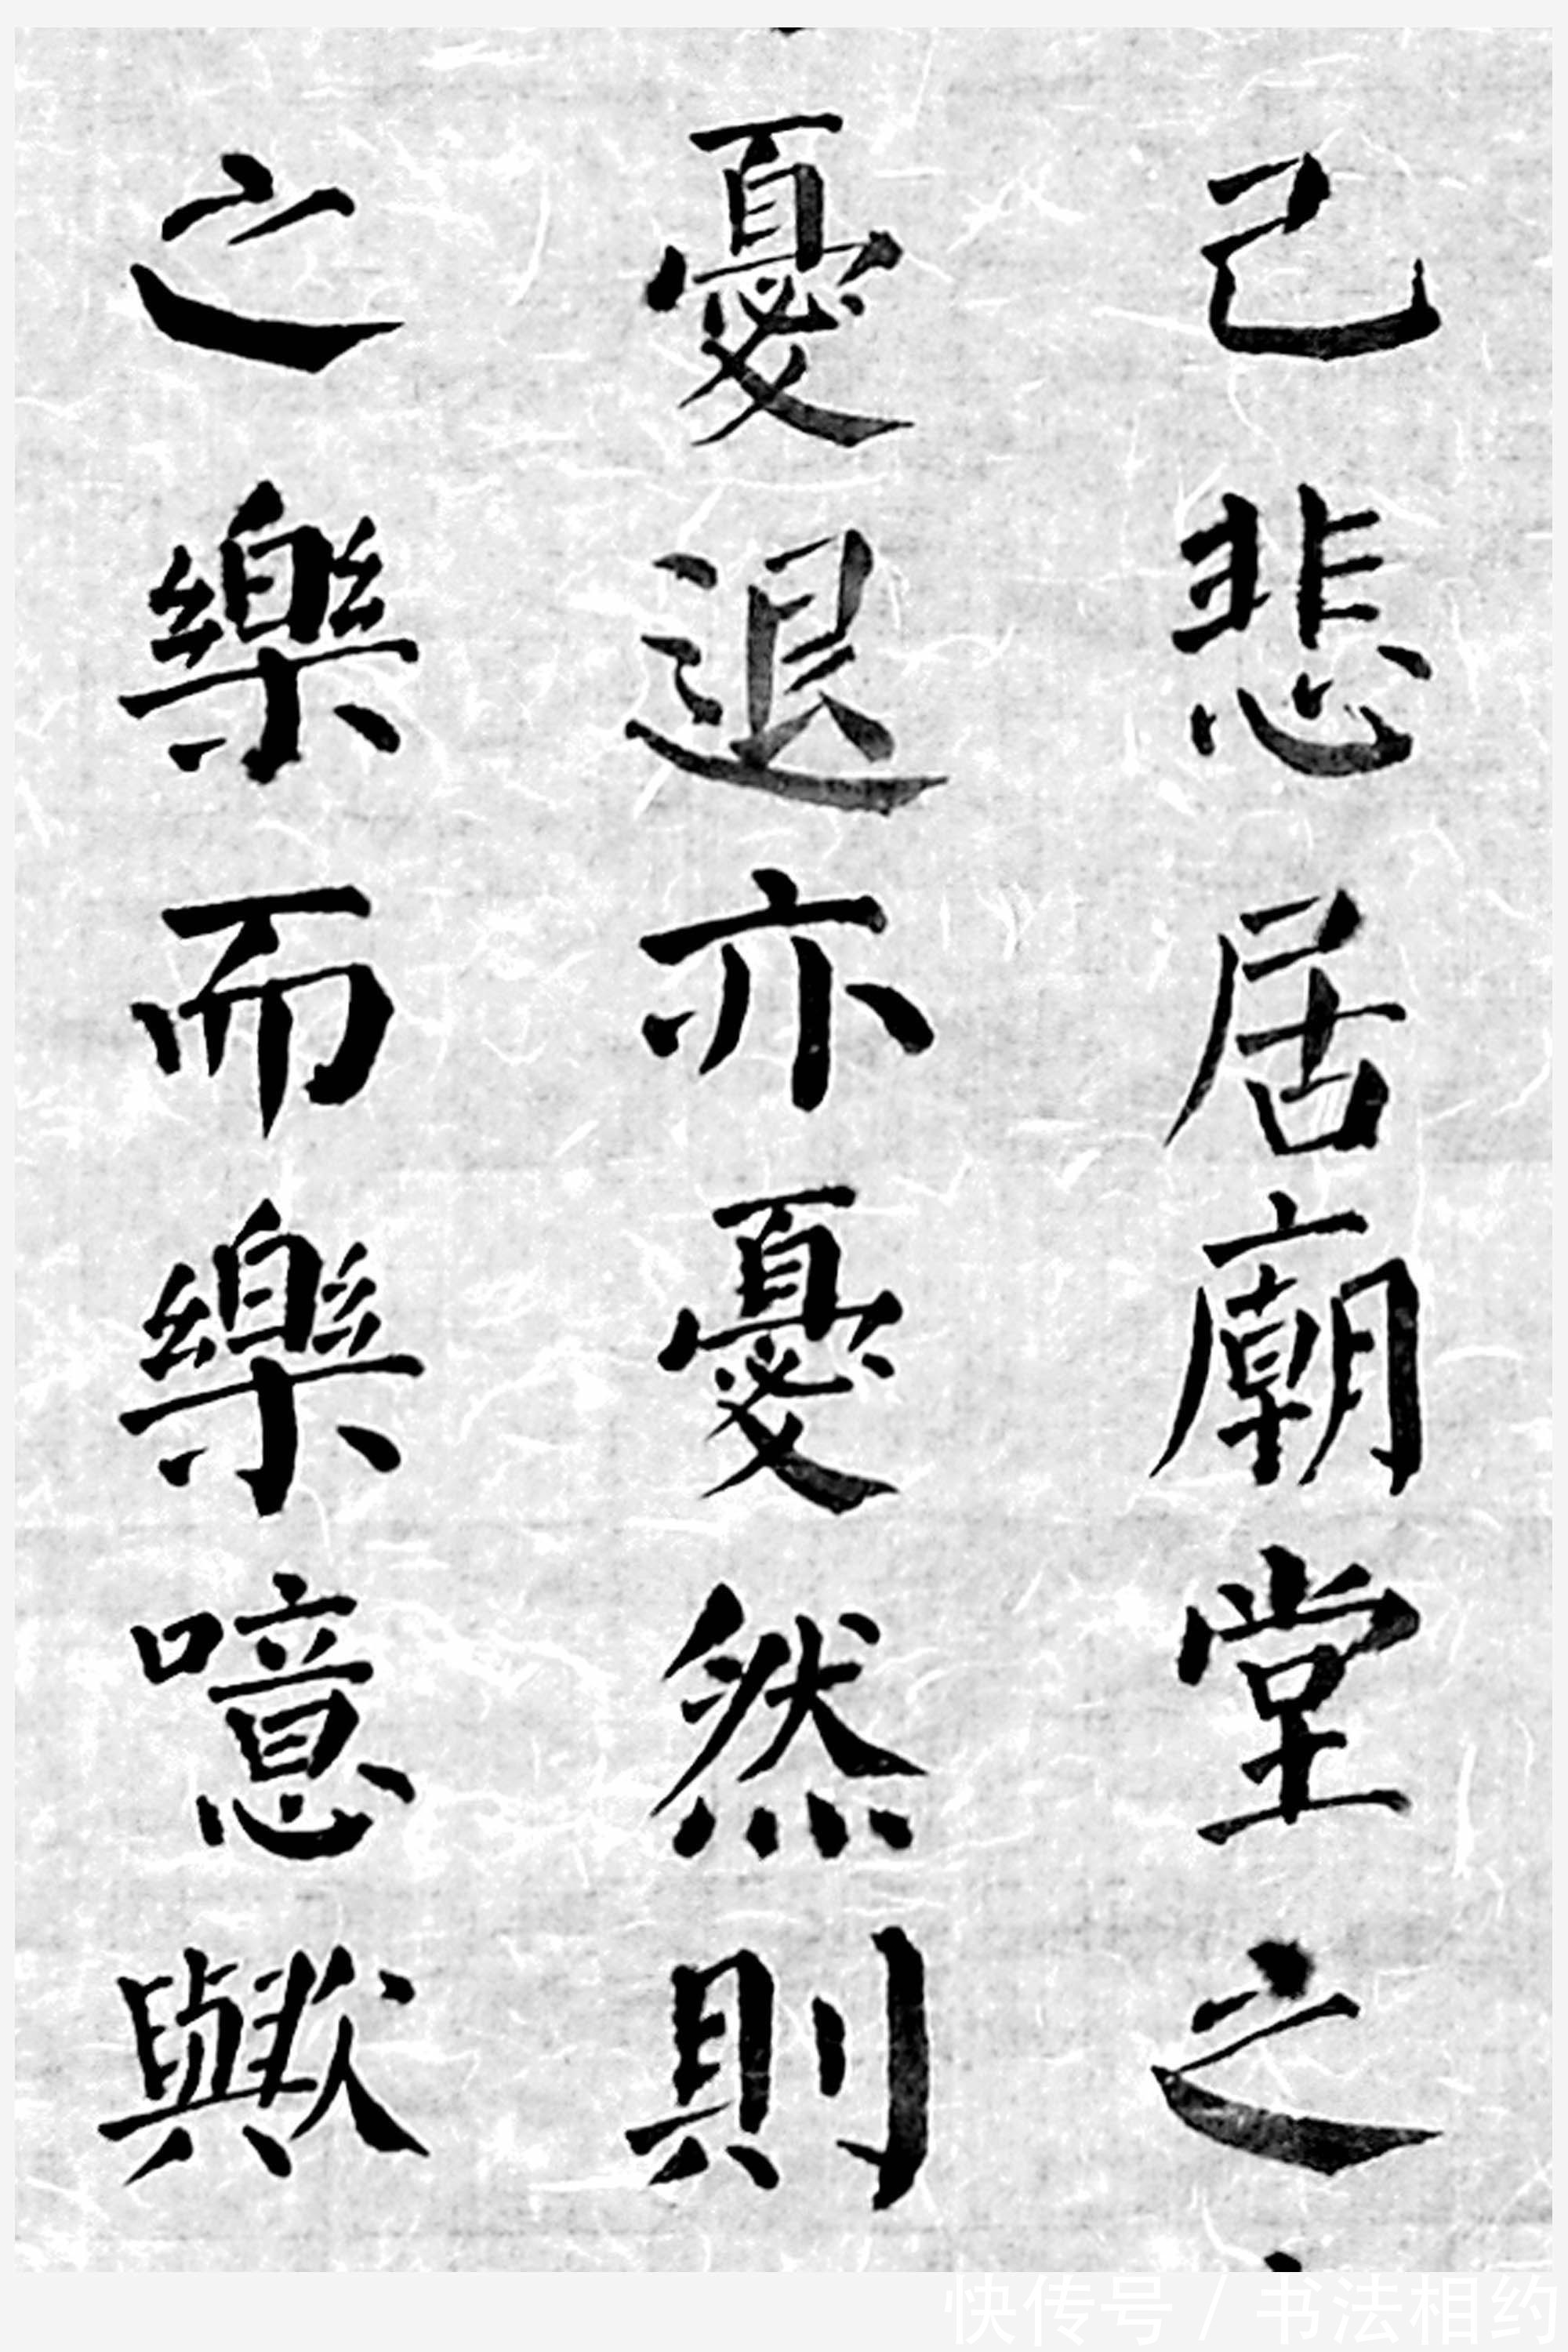 己悲居廟堂之
憂退亦憂然則
之樂而樂噫歟
快传号 / 书法相约